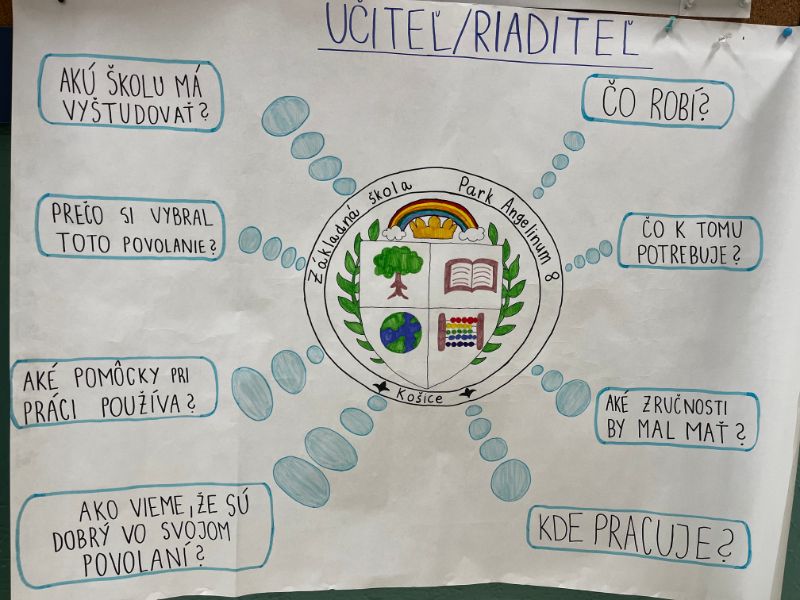 UČITEĽ/RIADITEĽ
AKÚ ŠKOLU MÁ
VYŠTUDOVAŤ?
ČO ROBÍ?
PREČO SI VYBRAL
TOTO POVOLANIE?
ČO K TOMU
POTREBUJE?
Základná škola Park Angelinum 8
Košice
AKÉ POMÔCKY PRI
PRÁCI POUŽÍVA?
AKÉ ZRUČNOSTI
BY MAL MAŤ?
AKO VIEME, ŽE SÚ
DOBRÝ VO SVOJOM
POVOLANÍ?
KDE PRACUJE?